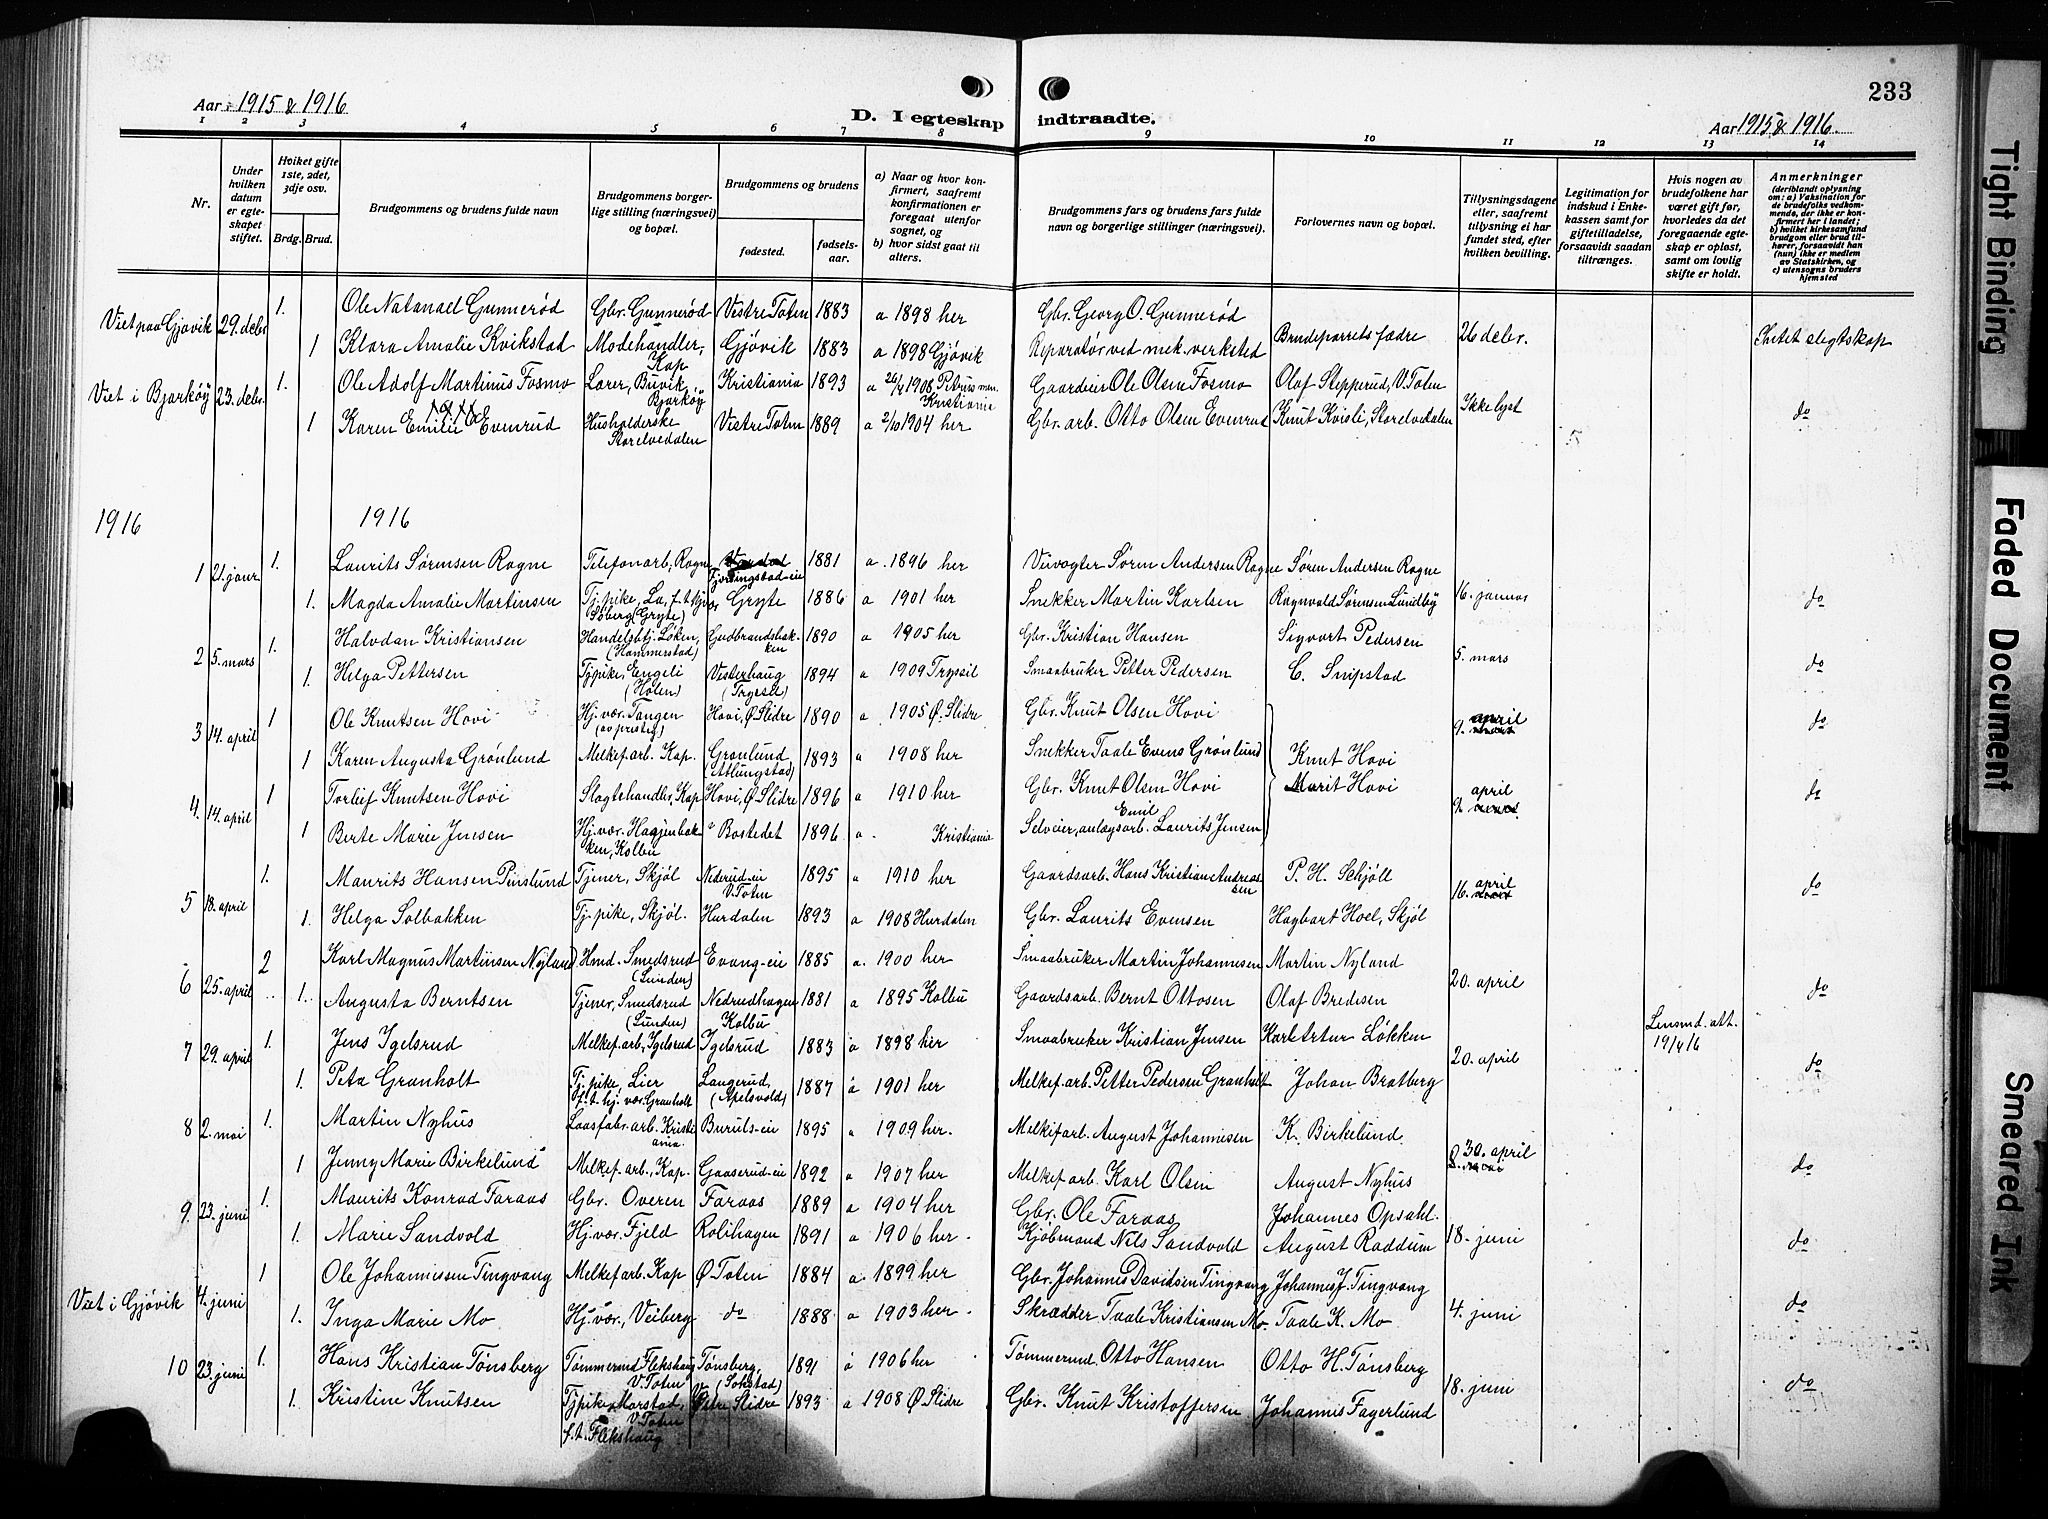 233
Aar 1915 & 1916
D. I egteskap indtraadte.
Aar 1915 & 1916
1 2 3 4 5 6 7 8 9 10 11 12 13 14
Nr.
Under hvilken datum er egteskapet stiftet.
Hvilket gifte 1ste, 2det, 3dje osv.
Brdg. Brud.
Brudgommens og brudens fulde navn
Brudgommens borgerlige stilling (næringsvei) og bopæl.
Brudgommens og brudens
fødested. fødselsaar.
a) Naar og hvor konfirmert, saafremt konfirmationen er foregaat utenfor sognet, og
b) hvor sidst gaat til alters.
Brudgommens fars og brudens fars fulde navn og borgerlige stillinger (næringsvei).
Forlovernes navn og bopæl.
Tillysningsdagene eller, saafremt tillysning ei har fundet sted, efter hvilken bevilling.
Legitimation for indskud i Enkekassen samt for giftetilladelse, forsaavidt saadan tiltrænges.
Hvis nogen av brudefolkene har været gift før, hvorledes da det foregaaende egteskap er opløst, samt om lovlig skifte er holdt.
Anmerkninger
(deriblandt oplysning om: a) Vaksination for de brudefolks vedkommende, der ikke er konfirmert her i landet; b) hvilket kirkesamfund brudgom eller brud tilhører, forsaavidt han (hun) ikke er medlem av Statskirken, og c) utensogns bruders hjemsted
Viet paa Gjøvik 29. debr 1. Ole Natanael Gunnerød Gbr. Gunnerød Vestre Toten 1883 a 1898 her Gbr. Georg O. Gunnerød
1 Klara Amalie Kvikstad Modehandler, Kap Gjøvik 1883 a 1898 Gjøvik Reparatør ved mek. verksted Brudeparrets fædre 26 debr. Intet slegtskap
Viet i Bjarkøy 23. debr. 1. Ole Adolf Martinus Fosmo Lærer, Buvik, Bjarkøy Kristiania 1893 a 26/4 1908 Petrus men. Kristiania Gaardeier Ole Olsen Fosmo Olaf Stepperud, V. Toten
1 Karen Emilie Evenrud Husholderske Storelvedalen Vestre Toten 1889 a 2/10 1904 her Gbr. arb. Otto Olsen Evenrud Knut Kvisli, Storelvedalen Ikke lyst do
1916 1916
1 21. janr 1. Laurits Sørensen Rogne Telefonarb, Rogne Fjorsingstad-eie 1881 a. 1896 her Veivogter Søren Andersen Rogne Søren Andersen Rogne
1. Magda Amalie Martinsen Tj. pike, La, f. t. hj. vær Søberg (Gryte) Gryte 1886 a 1901 her Snekker Martin Karlsen Ragnvald Sørensen Lundby 16. januar do
2 5. mars 1. Halvdan Kristiansen Handelsbtj. Løken, (Hammerstad) Gudbrandsbakken 1890 a 1905 her Gbr. Kristian Hansen Sigvart Pedersen
1. Helga Pettersen Tj. pike, Engeli (Holen) Vesterhaug (Trysil) 1894 a 1909 Tryssil Smaabruker Petter Pedersen C. Snipstad 5. mars do
3 14. april 1 Ole Knutsen Hovi Hj. vær. Tangen (av prestg) Hovi, Ø. Slidre 1890 a. 1905 Ø. Slidre Gbr. Knut Olsen Hovi 9. april do
1 Karen Augusta Grønlund Melkef. arb. Kap. Grønlund (Atlungstad) 1893 a 1908 her Snekker Taale Evens Grønlund Knut Hovi
4. 14. april 1 Torleif Knutsen Hovi Slagtehandler, Kap Hovi, Ø. Slidre 1896 a 1910 her Gbr. Knut Olsen Hovi Marit Hovi 9. april do
1 Berte Marie Jensen Hj. vær. Hagjenbakken, Kolbu Bostedet 1896 a. Kristiania Selveier, anlægsarb. Emil Laurits Jensen
5 18. april 1. Maurits Hansen Pinslund Tjener, Skjøl Nederud-eie V. Toten 1895 a 1910 her Gaardsarb. Hans Kristian Andreassen P. H. Schjøll 16. april do
1. Helga Solbakken Tj. pike, Skjøl. Hurdalen 1893 a 1908 Hurdalen Gbr. Laurits Evensen Hagbart Hoel, Skjøl
6 25. april 2 Karl Magnus Martinsen Nyland Hmd. Smedsrud (Lunden) Evang-eie 1885 a. 1900 her Smaabruker Martin Johannesen Martin Nyland
1. Augusta Berntsen Tjener, Smedsrud (Lunden) Nedrudhagen Kolbu 1881 a 1895 Kolbu Gaardsarb. Bernt Ottosen Olaf Bredesen 20. april do
7 29. april 1. Jens Igelsrud Melkef. arb, Igelsrud Igelsrud 1883 a 1898 her Smaabruker Kristian Jensen Karl Artur Løkken Lensmd. att. 19/4 16
1. Peta Granholt Tj. pike, Lier f. t. hj. vær. Granholt Langerud, (Apelsvold) 1887 a 1901 her Melkef. arb. Petter Pedersen Granholt Johan Bratberg 20. april do
8 2. mai 1. Martin Nyhus Laasfabr. arb. Kristiania. Buruls-eie 1895 a 1909 her. Melkef arb. August Johannesen K. Birkelund
1 Jenny Marie Birkelund Melkef. arb., Kap. Gaaserud-eie 1892 a 1907 her Melkef arb. Karl Olsen August Nyhus 30. april do
9. 23. juni 1. Maurits Konrad Faraas Gbr. Overen Faraas 1889 a 1904 her Gbr. Ole Faraas Johannes Opsahl.
1. Marie Sandvold Hj. vær. Fjeld Rolihagen 1891 a 1906 her. Kjøbmand Nils Sandvold August Raddum 18. juni do
Viet i Gjøvik 4. juni 1 Ole Johannessen Tingvang Melkef arb. Kap Ø. Toten 1884 a. 1899 her Gbr. Johannes Davidsen Tingvang Johannes J. Tingvang
1. Inga Marie Mo Hj. vær., Veiberg do 1888 a 1903 her. Skrædder Taale Kristiansen Mo. Taale K. Mo 4. juni do
10 23. juni 1. Hans Kristian Tønsberg Tømmermd Flekshaug V. Toten Tønsberg, (Sokstad) 1891 a 1906 her Tømmermd. Otto Hansen Otto H. Tønsberg
1. Kristine Knutsen Tj. pike Marstad, V. Toten f. t. Flekshaug Østre Slidre 1893 a 1908 Ø. Slidre Gbr. Knut Kristoffersen Johannes Fagerlund 18. juni do
Tight Binding
Faded Document
Smeared Ink